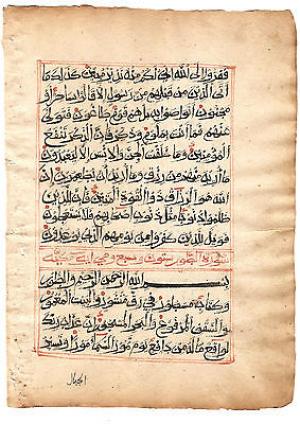 ففروا الى الله اني لكم منه نذير مبين كذلك ما
أتى الذين من قبلهم من رسول الا قالوا ساحر أو
مجنون أتواصوا به بل هم قوم طاغون فتول
عنهم فما أنت بملوم وذكر فإن الذكرى تنفع
المؤمنين وما خلقت الجن والإنس إلا ليعبدون
ما أريد منهم من رزق وما أريد أن يطعمون إن
الله هو الرزاق ذو القوة المتين فإن للذين
ظلموا ذنوبا مثل ذنوب أصحابهم فلا يستعجلون
فويل للذين كفروا من يومهم الذي يوعدون
سورة الطور ستون وسبع مكية
بسم الله الرحمن الرحيم والطور
وكتاب مسطور في رق منشور والبيت المعمور
والسقف المرفوع والبحر المسجور إن عذاب ربك
لواقع ما له من دافع يوم تمور السماء مورا وتسير
الجبال